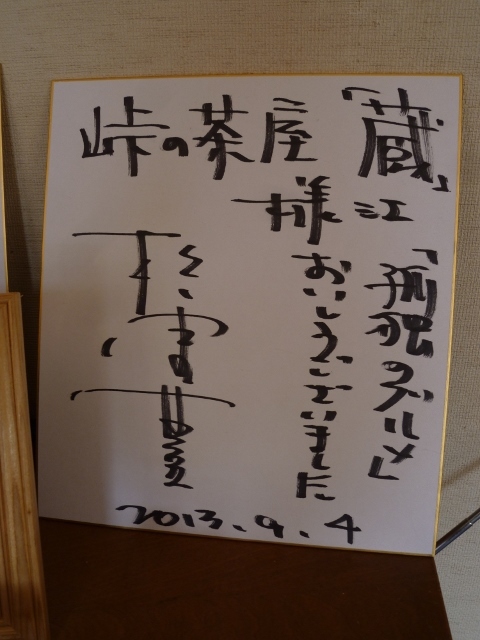 峠の茶屋「蔵」
様江
「孤独のグルメ」
おいしうございました
2013.9.4